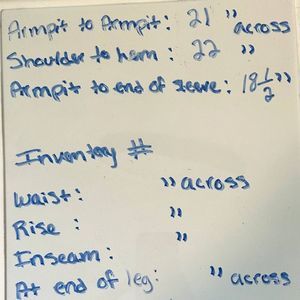 Armpit to Armpit: 21 " across
Shoulder to hem: 22 "
Armpit to end of sleeve: 18 1/2 "
Inventory #
Waist: " across
Rise: "
Inseam: "
At end of leg: " across